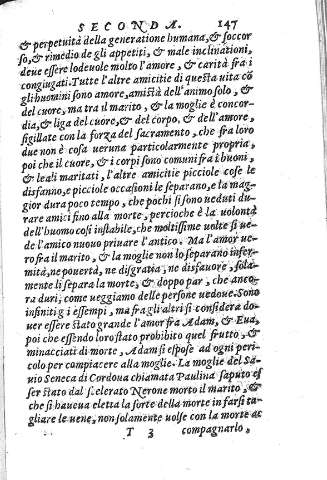 SECONDA. 147
& perpetuità della generatione humana, & soccor
so, & rimedio de gli appetiti, & male inclinationi,
deue essere lodeuole molto l'amore, & carità fra i
congiugati. Tutte l'altre amicitie di questa uita cō
gli huomini sono amore, amistà dell'animo solo, &
del cuore, ma tra il marito, & la moglie è concor-
dia, & liga del cuore, & del corpo, & dell'amore,
sigillate con la forza del sacramento, che fra loro
due non è cosa ueruna particolarmente propria,
poi che il cuore, & i corpi sono comuni fra i buoni,
& leali maritati, l'altre amicitie picciole cose le
disfanno, e picciole occasioni le separano, e la mag-
gior dura poco tempo, che pochi si sono ueduti du-
rare amici fino alla morte, percioche è la uolontà
dell'huomo così instabile, che moltissime uolte si ue-
de l'amico nuouo priuare l'antico. Ma l'amor ue-
ro fra il marito, & la moglie non lo separano infer-
mità, ne pouertà, ne disgratia, ne disfauore, sola-
mente li separa la morte, & doppo par, che anco-
ra duri; come ueggiamo delle persone uedoue. Sono
infiniti g i essempi, ma fra gli altri si considera do-
uer essere stato grande l'amor fra Adam, & Eua,
poi che essendo loro stato prohibito quel frutto, &
minacciati di morte, Adam si espose ad ogni peri-
colo per compiacere alla moglie. La moglie del Sa-
uio Seneca di Cordoua chiamata Paulina saputo es
ser stato dal scelerato Nerone morto il marito, &
che si haueua eletta la sorte della morte in farsi ta-
gliare le uene, non solamente uolse con la morte ac
T 3 compagnarlo,